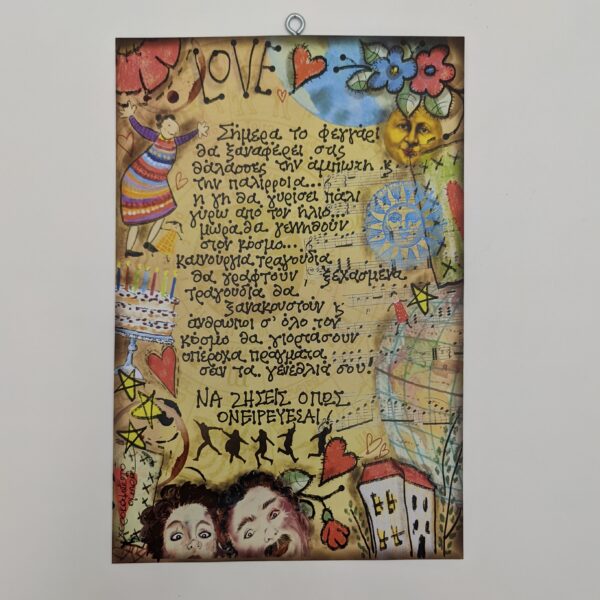 LOVE
Σήμερα το φεγγάρι
θα ξαναφέρει στις
θάλασσες την άμπωτη κ
την παλίρροια...
η γη θα γυρίσει πάλι
γύρω από τον ήλιο...
μωρά θα γεννηθούν
στον κόσμο...
καινούργια τραγούδια
θα γραφτούν, ξεχασμένα
τραγούδια θα
ξανακουστούν κ
άνθρωποι σ' όλο τον
κόσμο θα γιορτάσουν
υπέροχα πράγματα
σαν τα γενέθλιά σου!
ΝΑ ΖΗΣΕΙΣ ΟΠΩΣ
ΟΝΕΙΡΕΥΕΣΑΙ!